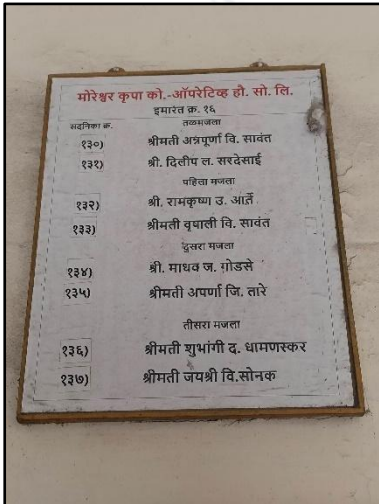 मोरेश्वर कृपा को.-ऑपरेटिव्ह हौ. सो. लि.
इमारत क्र. १६
सदनिका क्र. तळमजला
१३०) श्रीमती अन्नपूर्णा वि. सावंत
१३१) श्री. दिलीप ल. सरदेसाई
पहिला मजला
१३२) श्री. रामकृष्ण उ. आर्ते
१३३) श्रीमती वृषाली वि. सावंत
दुसरा मजला
१३४) श्री. माधव ज. गोडसे
१३५) श्रीमती अपर्णा जि. तारे
तीसरा मजला
१३६) श्रीमती शुभांगी द. धामणस्कर
१३७) श्रीमती जयश्री वि.सोनक